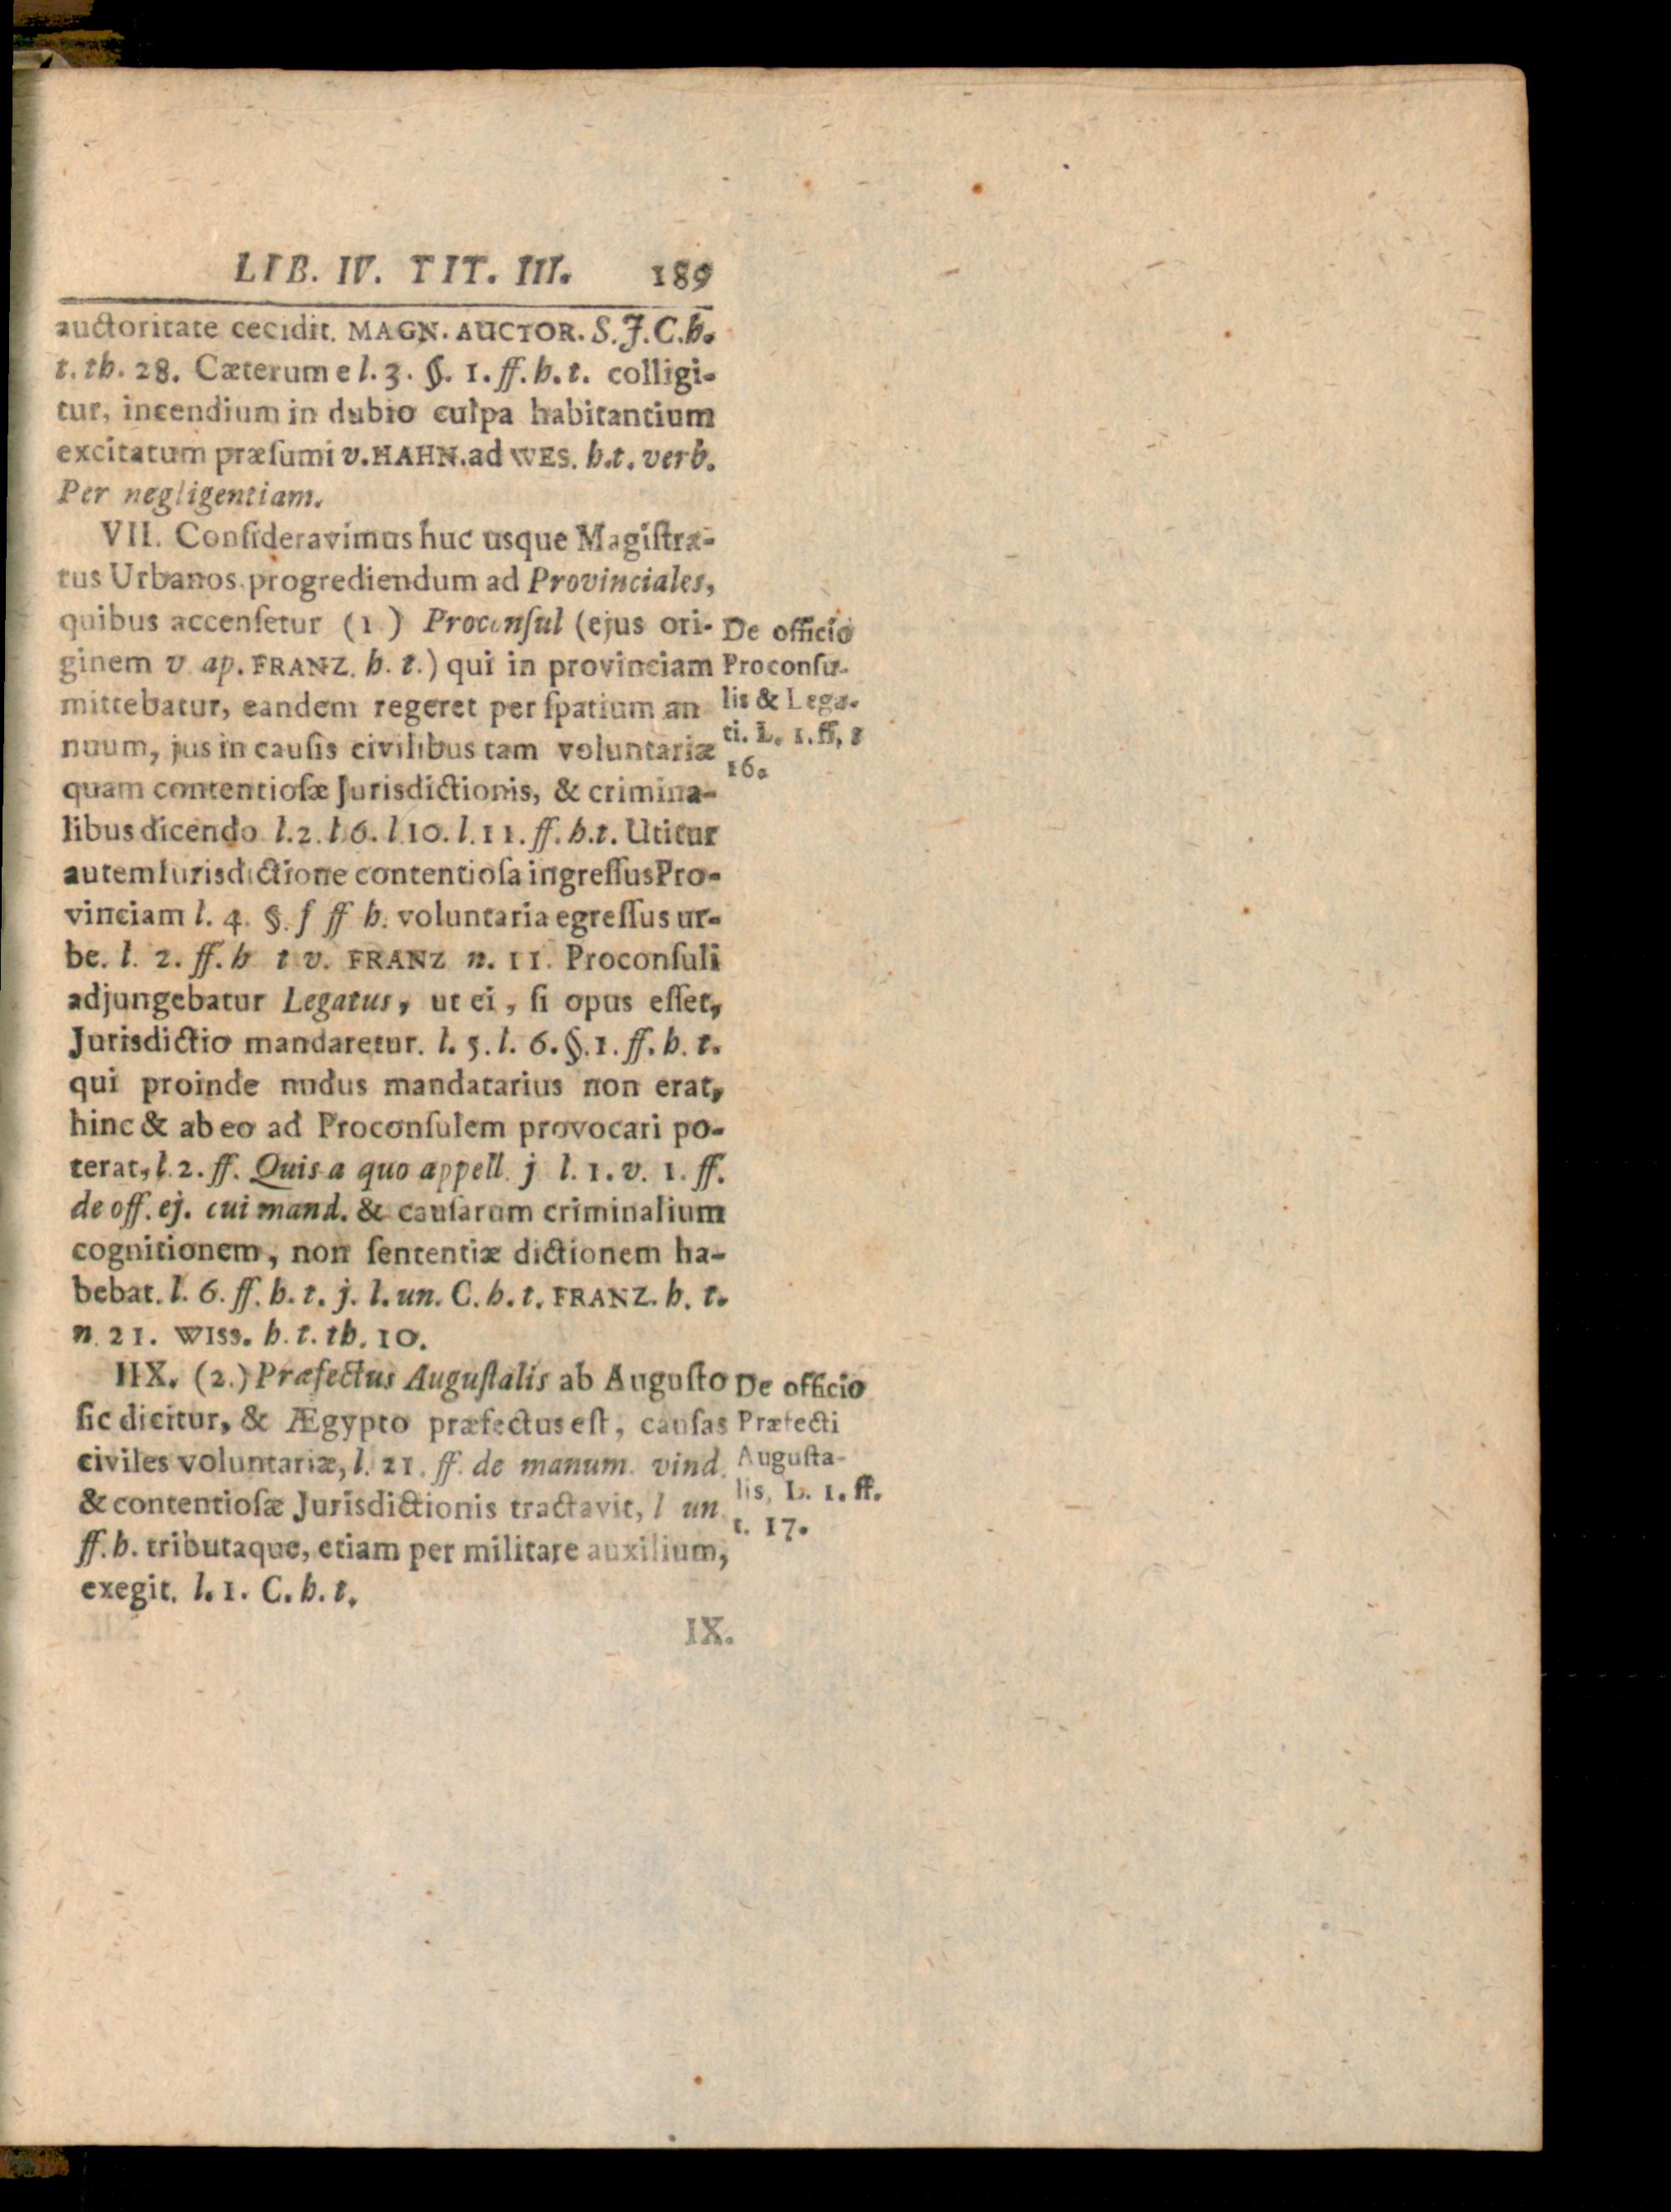 LIB. IV. TIT. III. 189
auctoritate cecidit. MAGN. AUCTOR. S. J. C. h.
t. th. 28. Cæterum e l. 3. §. 1. ff. h. t. colligi-
tur, incendium in dubio culpa habitantium
excitatum præſumi v. HAHN. ad WES. h. t. verb.
Per negligentiam.
VII. Conſideravimus huc usque Magiſtra-
tus Urbanos. progrediendum ad Provinciales,
quibus accenſetur (1) Proconſul (ejus ori-
ginem v ap. FRANZ. h. t.) qui in provinciam
mittebatur, eandem regeret per ſpatium an
nuum, jus in cauſis civilibus tam voluntariæ
quam contentioſæ Jurisdictionis, & crimina-
libus dicendo l. 2. l. 6. l. 10. l. 11. ff. h. t. Utitur
autem Iurisdictione contentioſa ingreſſus Pro-
vinciam l. 4. §. f ff h. voluntaria egreſſus ur-
be. l. 2. ff. h t v. FRANZ n. 11. Proconſuli
adjungebatur Legatus, ut ei, ſi opus eſſet,
Jurisdictio mandaretur. l. 5. l. 6. §. 1. ff. h. t.
qui proinde nudus mandatarius non erat,
hinc & ab eo ad Proconſulem provocari po-
terat, l. 2. ff. Quis a quo appell. j l. 1. v. 1. ff.
de off. ej. cui mand. & cauſarum criminalium
cognitionem, non ſententiæ dictionem ha-
bebat. l. 6. ff. h. t. j. l. un. C. h. t. FRANZ. h. t.
n. 21. WISS. h. t. th. 10.
De officio
Proconſu-
lis & Lega-
ti. L. 1. ff, t
16.
IIX. (2.) Præfectus Auguſtalis ab Auguſto
ſic dicitur, & Ægypto præfectus eſt, cauſas
civiles voluntariæ, l. 21. ff. de manum. vind.
& contentioſæ Jurisdictionis tractavit, l un.
ff. h. tributaque, etiam per militare auxilium,
exegit. l. 1. C. h. t.
De officio
Præfecti
Auguſta-
lis, L. 1. ff.
t. 17.
IX.